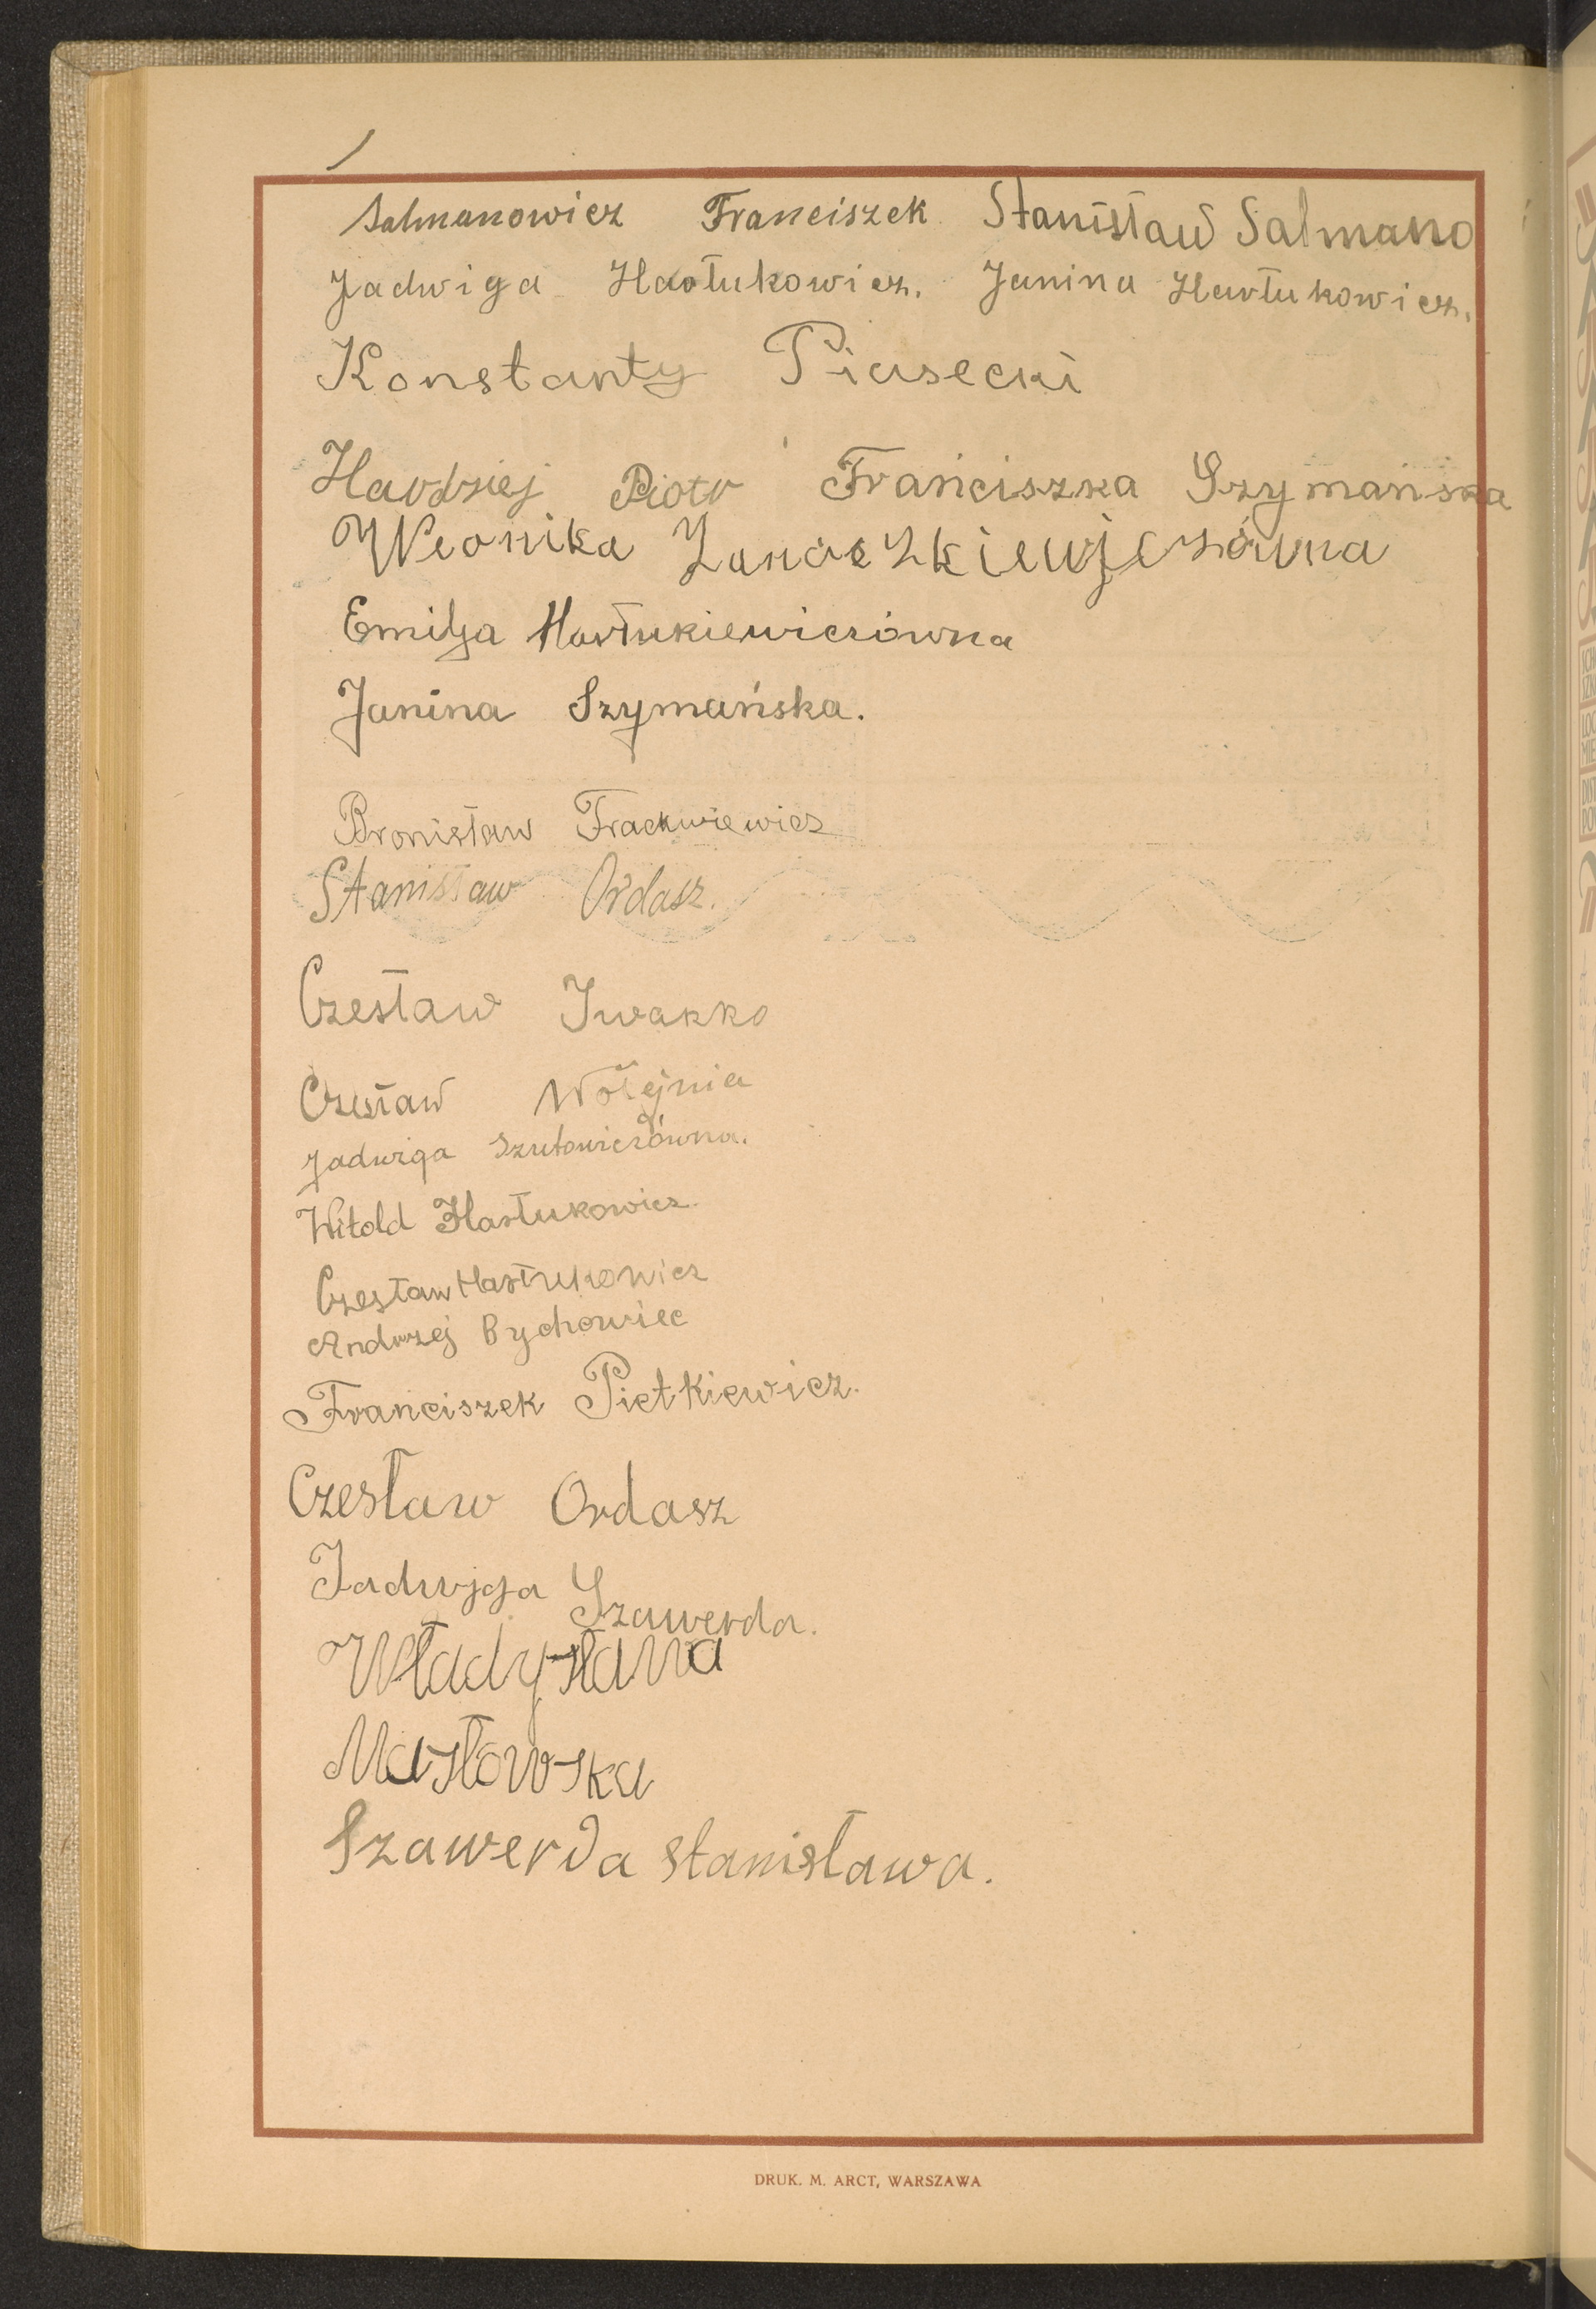 Salmanowicz Franciszek Stanisław Salmano
Jadwiga Hastukowicz. Janina Hastukowicz.
Konstanty Piasecki
Hardziej Piotr Franciszka Szymańska
Weonika
Emilja Hastukiewiczówna
Janina Szymańska.
Bronisław Frackwiewicz
Stanisław Ordasz.
Czesław Iwaxko
Czesław Wołejnia
Jadwiga Szutowiczówna.
Witold Hastukowicz.
Czesław Hastukowicz
Andrzej Bychowiec
Franciszek Pietkiewicz.
Czesław Ordasz
Jadwjga Szawerda.
Władysława
Masłowska
Szawerda stanisława.
DRUK. M. ARCT, WARSZAWA